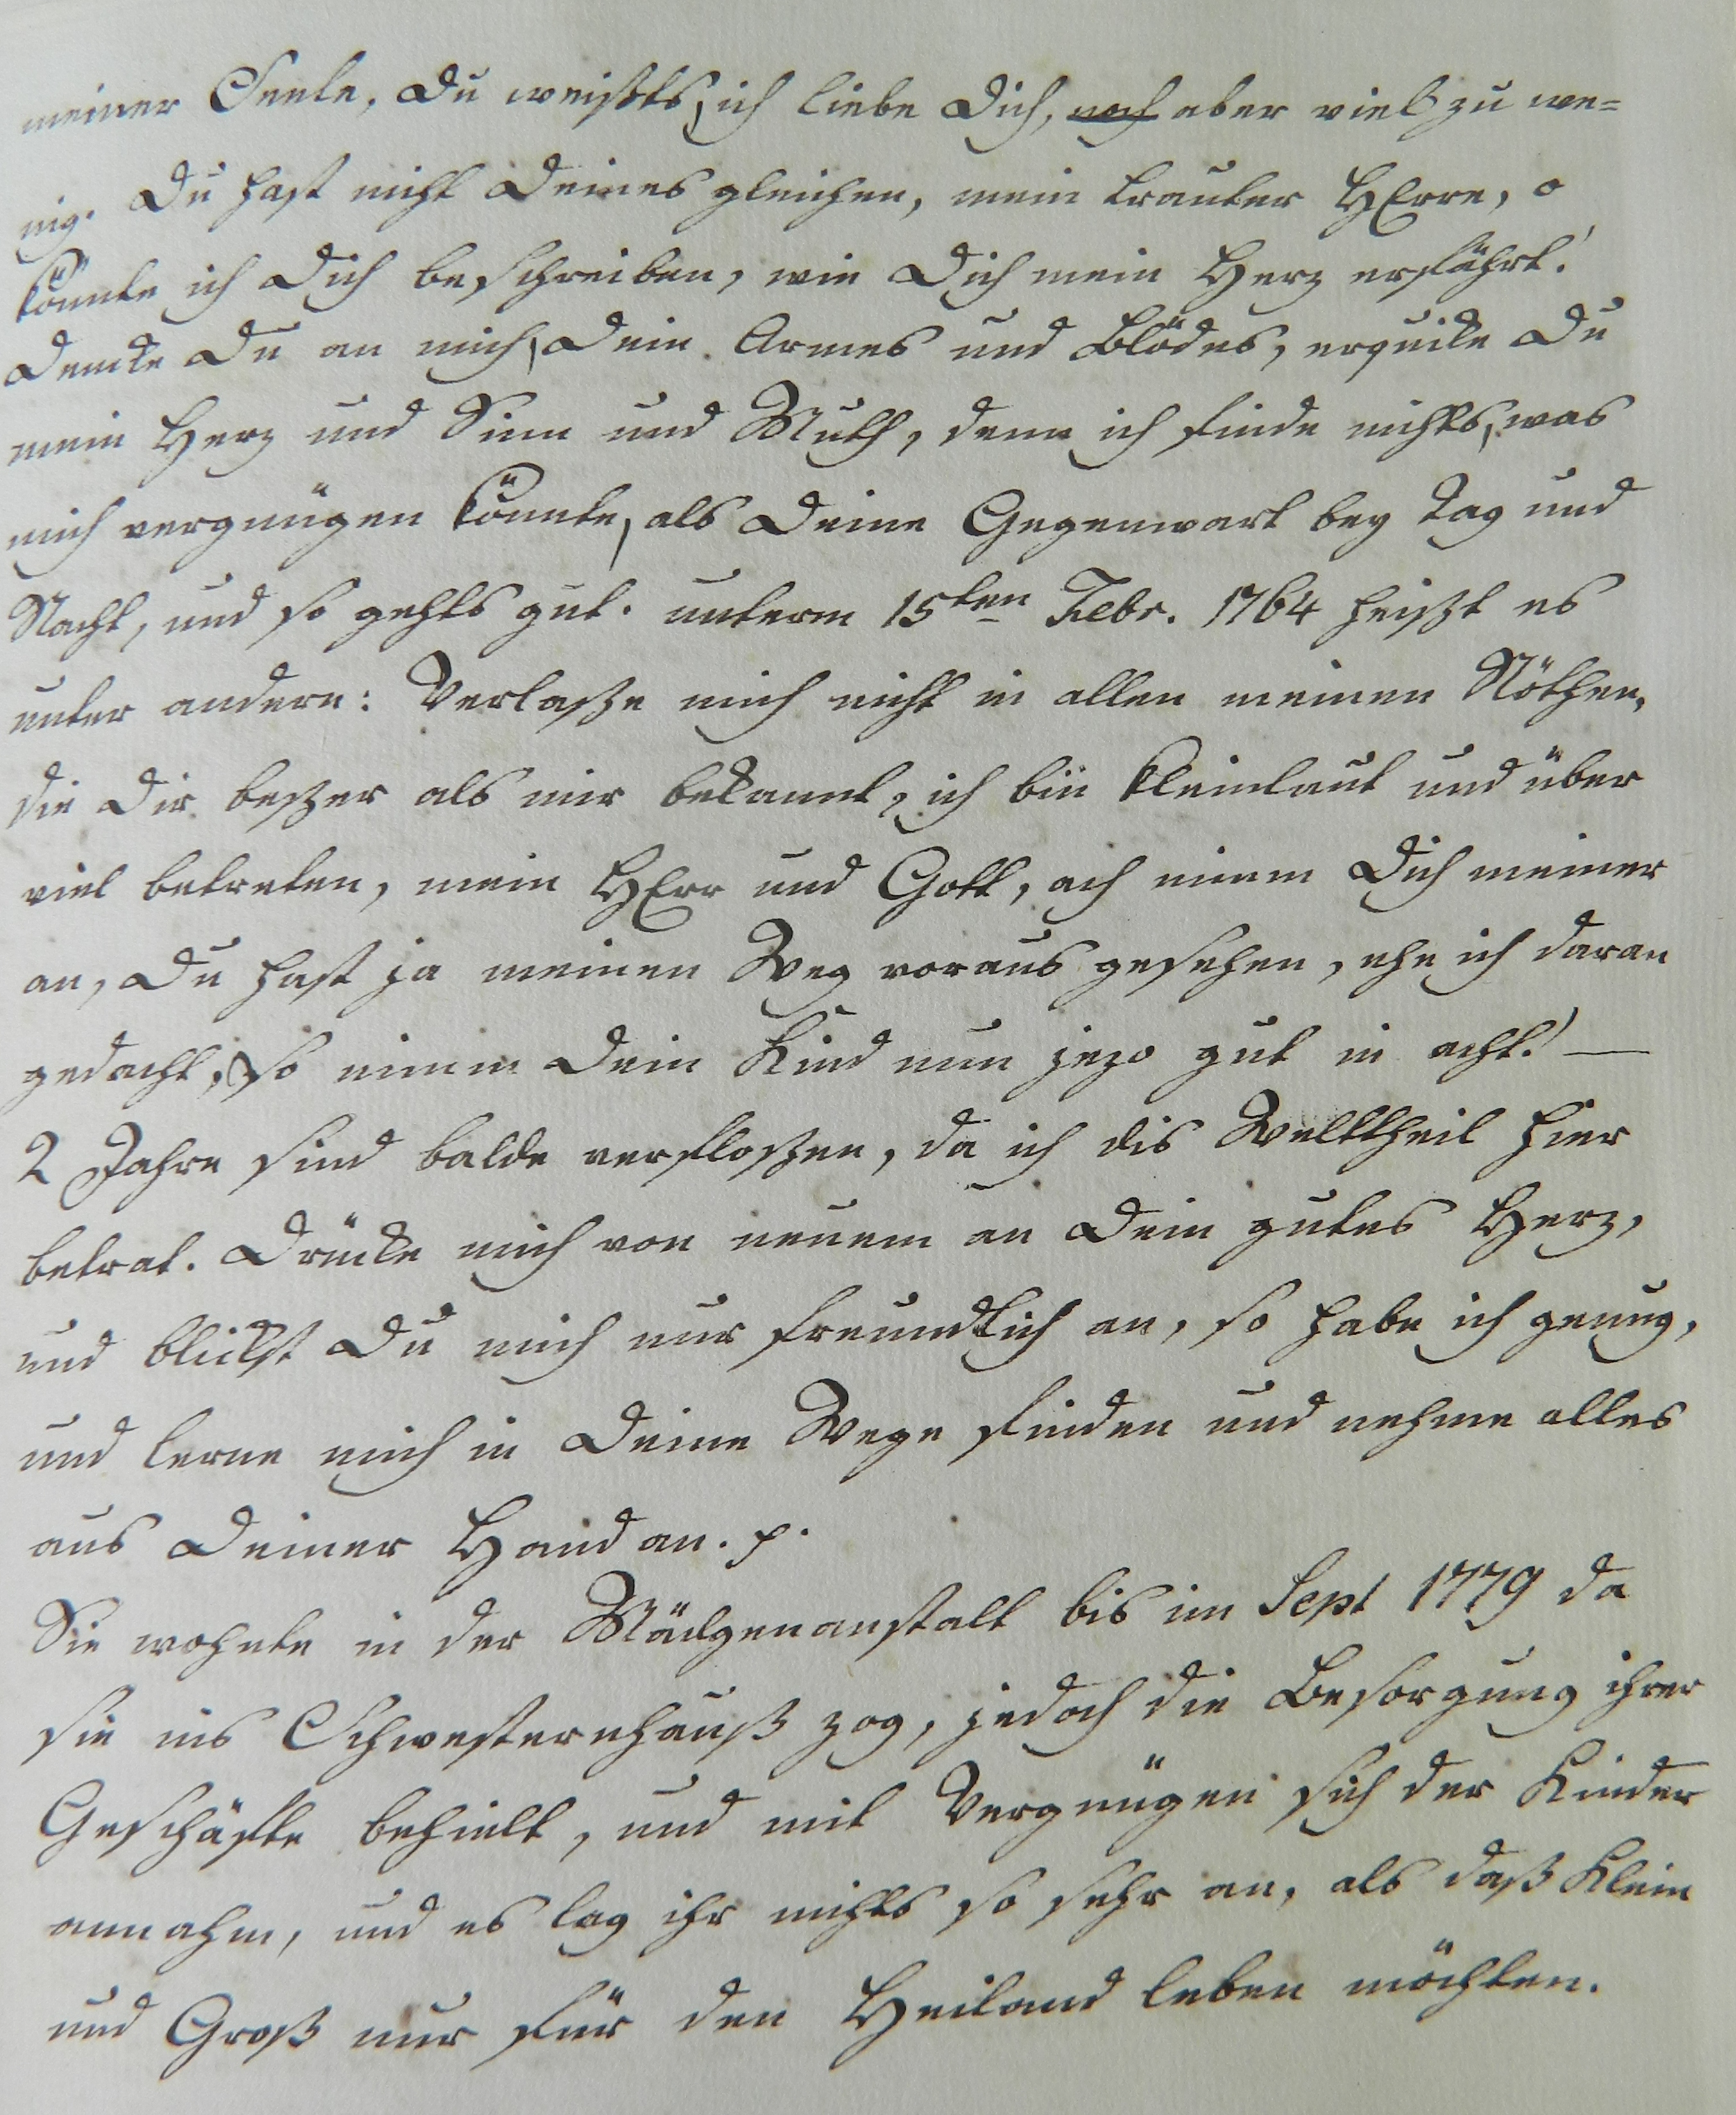 meiner Seele, Du weißts, ich liebe Dich, noch aber viel zu we=
nig. Du hast nicht Deines gleichen, mein trauter HErre, o
könnte ich Dich beschreiben, wie Dich mein Herz erfährt!
Dencke Du an mich, Dein Armes und Blödes, erquicke Du
mein Herz und Sinn und Muth, denn ich finde nichts, was
mich vergnügen könnte, als Deine Gegenwart bey Tag und
Nacht, und so gehts gut. unterm 15ten Febr. 1764 heißt es
unter andern: Verlaße mich nicht in allen meinen Nöthen,
die Dir beßer als mir bekannt, ich bin kleinlaut und über
viel betreten, mein HErr und Gott, ach nimm Dich meiner
an, Du hast ja meinen Weg voraus gesehen, ehe ich daran
gedacht, so nimm Dein Kind nun jezo gut in acht! —
2 Jahre sind balde verfloßen, da ich dis Welttheil hier
betrat. Drücke mich von neuem an Dein gutes Herz,
und blickst Du mich nur freundlich an, so habe ich genug,
und lerne mich in Deine Wege finden und nehme alles
aus Deiner Hand an. p.
Sie wohnte in der Mädgenanstalt bis im Sept 1779 da
sie ins Schwesternhauß zog, jedoch die Besorgung ihrer
Geschäfte behielt, und mit Vergnügen sich der Kinder
annahm, und es lag ihr nichts so sehr an, als daß Klein
und Groß nur für den Heiland leben möchten.